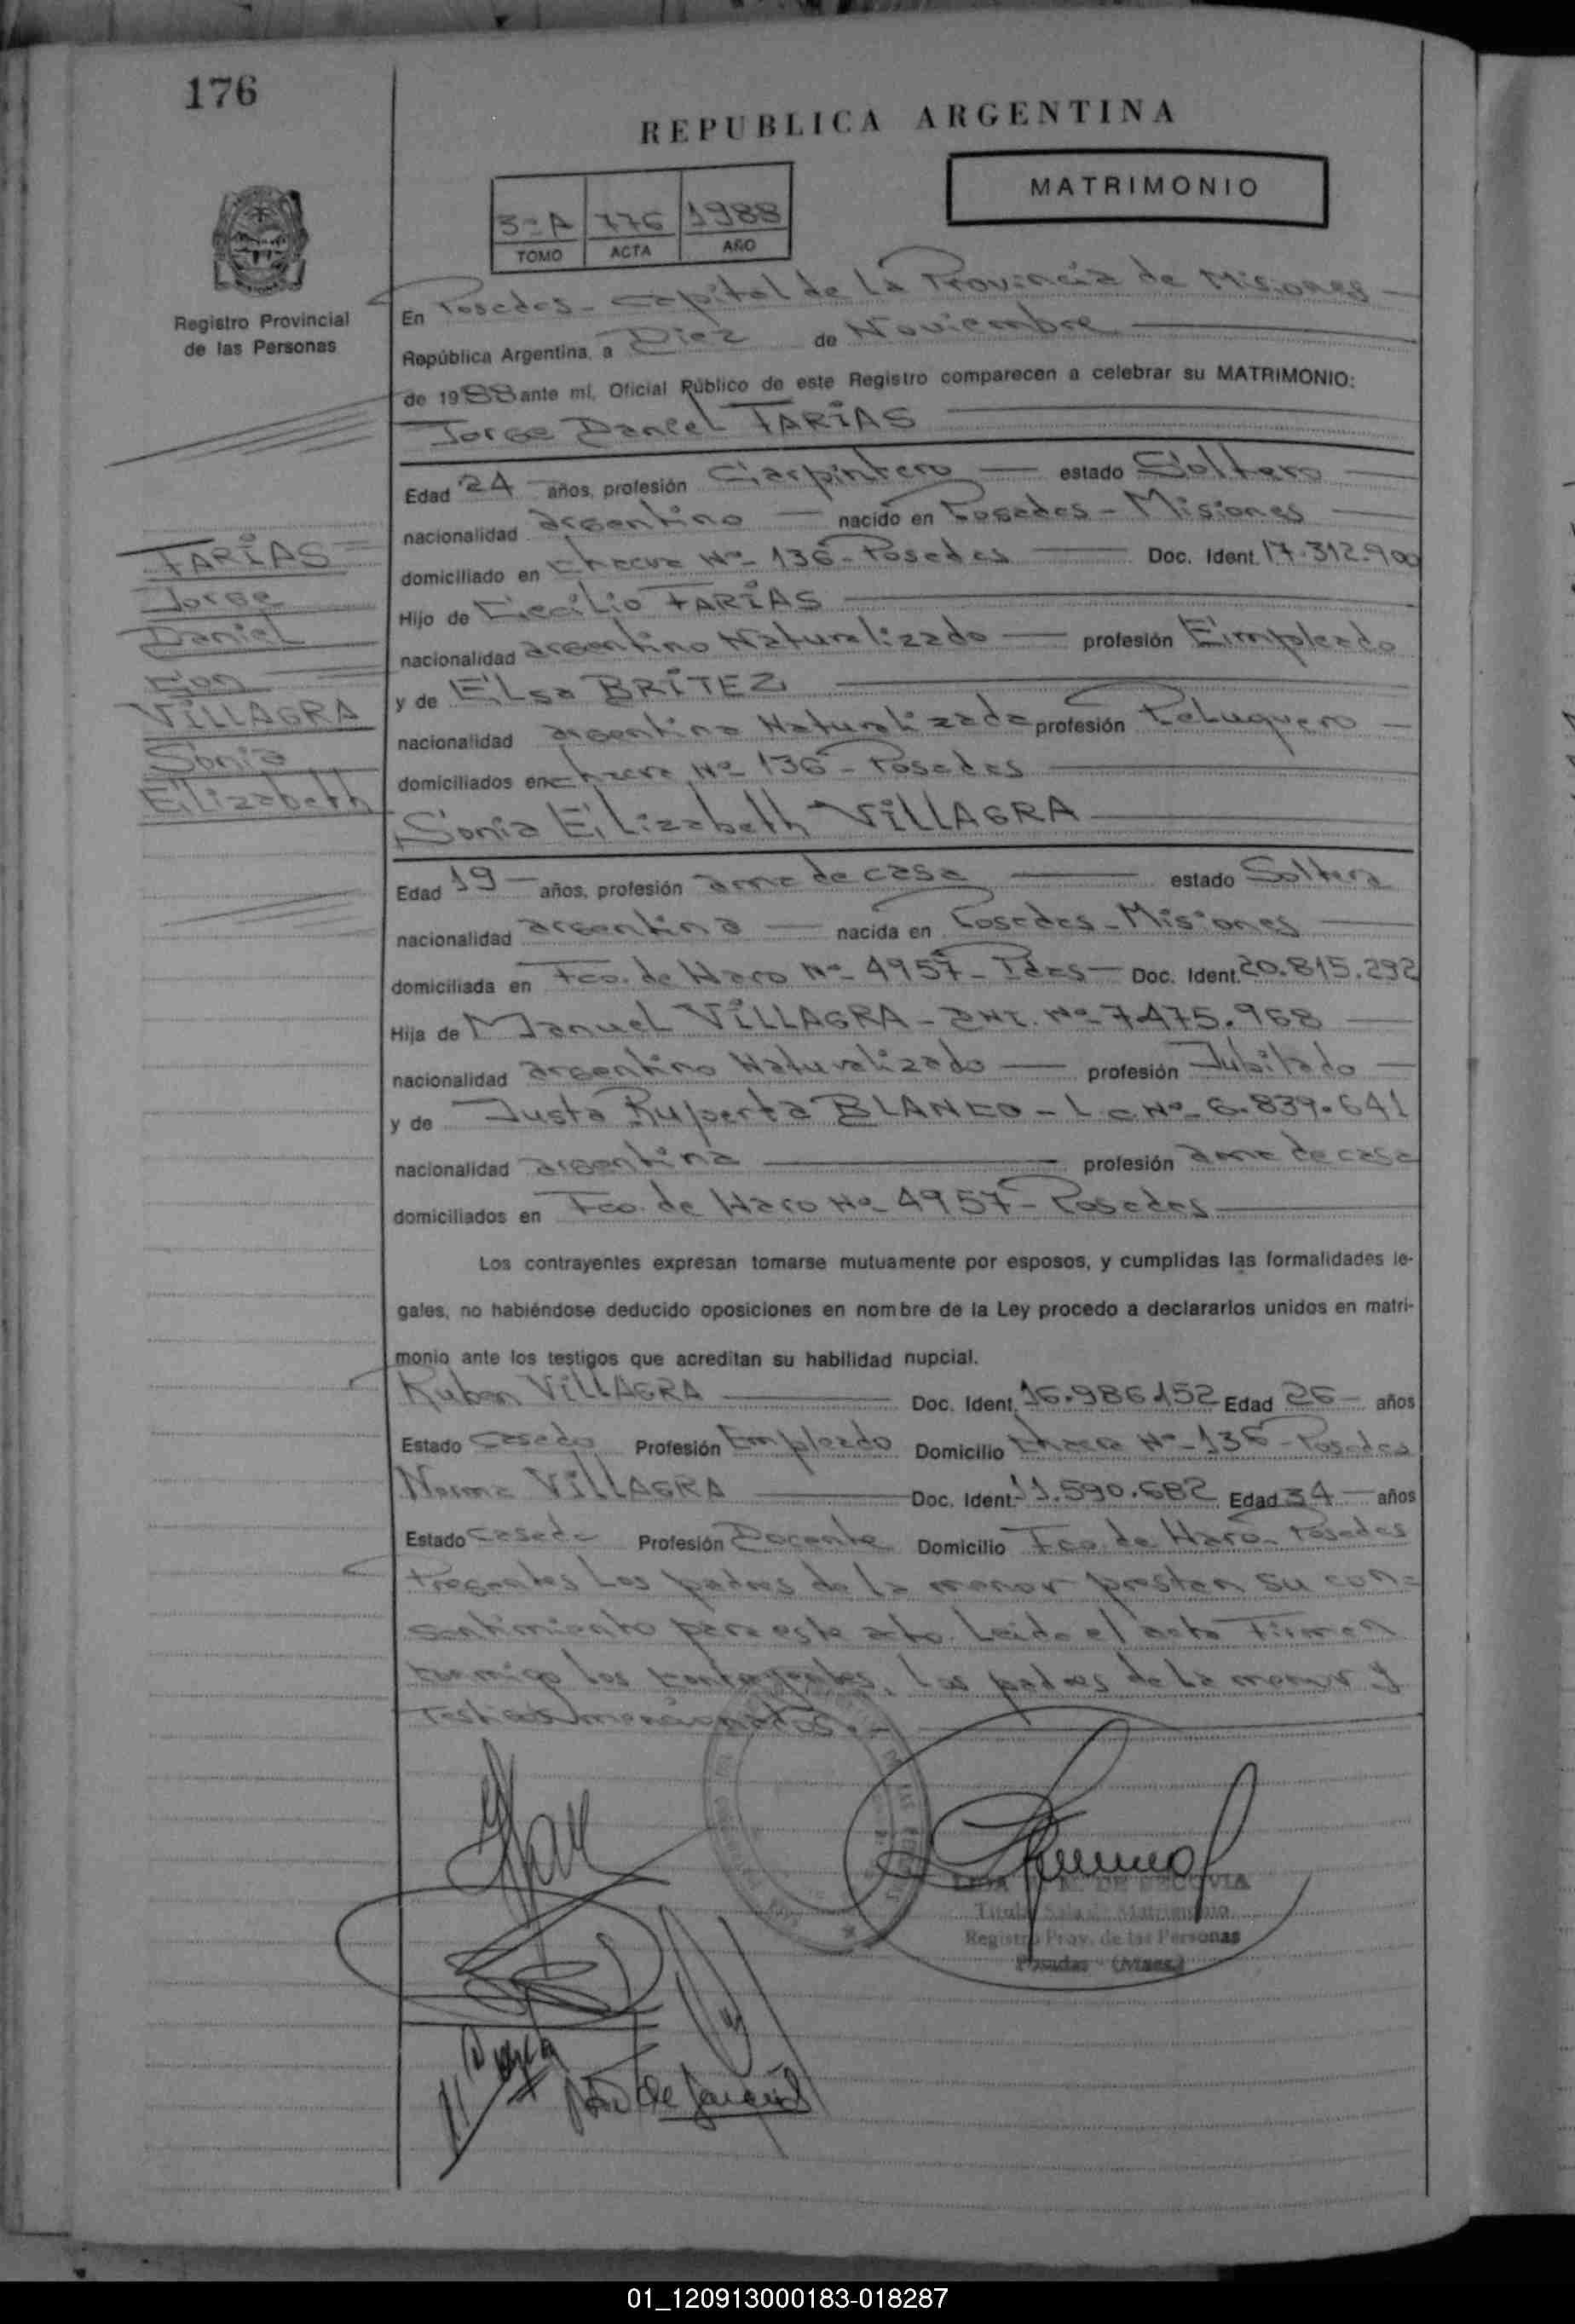 176
REPUBLICA ARGENTINA
MATRIMONIO
3º A 776 1988
TOMO ACTA AÑO
Registro Provincial
de las Personas
En Posadas - Capital de La Provincia de Misiones
República Argentina, a Diez de Noviembre
de 1988 ante mí, Oficial Público de este Registro comparecen a celebrar su MATRIMONIO:
Jorge Daniel FARIAS
Edad 24 años, profesión Carpintero estado Soltero
nacionalidad argentino nacido en Posadas - Misiones
domiciliado en chacra Nº 136 - Posadas Doc. Ident. 17.312.900
Hijo de Cecilio FARIAS
nacionalidad argentino Naturalizado profesión Empleado
y de Elsa BRITEZ
nacionalidad argentina Naturalizada profesión Peluquero
domiciliados en chacra Nº 136 - Posadas
Sonia Elizabeth VILLAGRA
Edad 19 años, profesión ama de casa estado Soltera
nacionalidad argentina nacida en Posadas - Misiones
domiciliada en Fco. de Haro Nº 4957 - Pdas Doc. Ident. 20.815.292
Hija de Manuel VILLAGRA - DNI. Nº 7.475.968
nacionalidad argentino Naturalizado profesión Jubilado
y de Justa Ruperta BLANCO - L.C. Nº 6.839.641
nacionalidad argentina profesión ama de casa
domiciliados en Fco. de Haro Nº 4957 - Posadas
Los contrayentes expresan tomarse mutuamente por esposos, y cumplidas las formalidades le-
gales, no habiéndose deducido oposiciones en nombre de la Ley procedo a declararlos unidos en matri-
monio ante los testigos que acreditan su habilidad nupcial.
Ruben VILLAGRA Doc. Ident. 16.986.152 Edad 26 años
Estado Casado Profesión Empleado Domicilio chacra Nº 136 - Posadas
Norma VILLAGRA Doc. Ident. 11.590.682 Edad 34 años
Estado casada Profesión Docente Domicilio Fco. de Haro - Posadas
Presentes Los padres de la menor prestan su con=
sentimiento para este acto. Leida el acta Firman
conmigo los contrayentes, los padres de la menor y
Testigos mencionados.-
FARIAS
Jorge
Daniel
con
VILLAGRA
Sonia
Elizabeth
DE SEGOVIA
Titular Sala de Matrimonio
Registro Prov. de las Personas
Posadas (Mnes.)
01_120913000183-018287